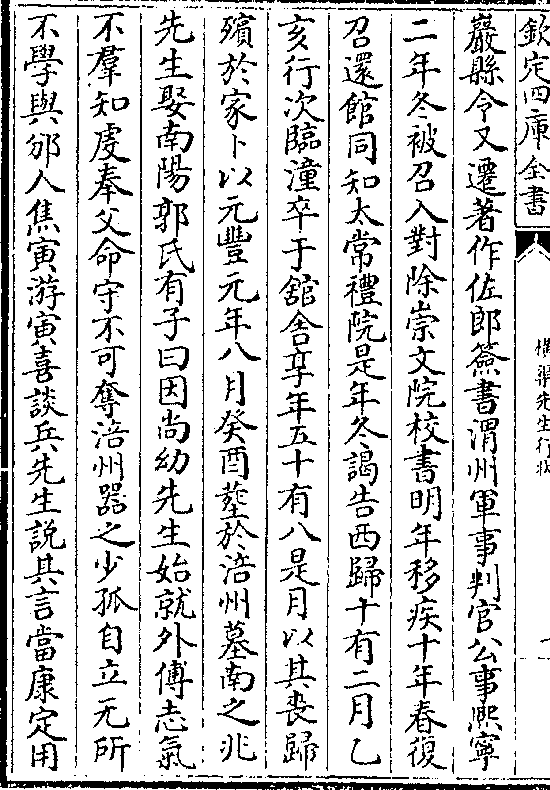 欽定四庫全書
橫渠先生行狀
一
巖縣令又遷著作佐郎簽書渭州軍事判官公事熙寧
二年冬被召入對除崇文院校書明年移疾十年春復
召還館同知太常禮院是年冬謁告西歸十有二月乙
亥行次臨潼卒于舘舍享年五十有八是月以其喪歸
殯於家卜以元豐元年八月癸酉塟於涪州墓南之兆
先生娶南陽郭氏有子曰因尚幼先生始就外傅志氣
不羣知䖍奉父命守不可奪涪州器之少孤自立无所
不學與邠人焦寅游寅喜談兵先生說其言當康定用